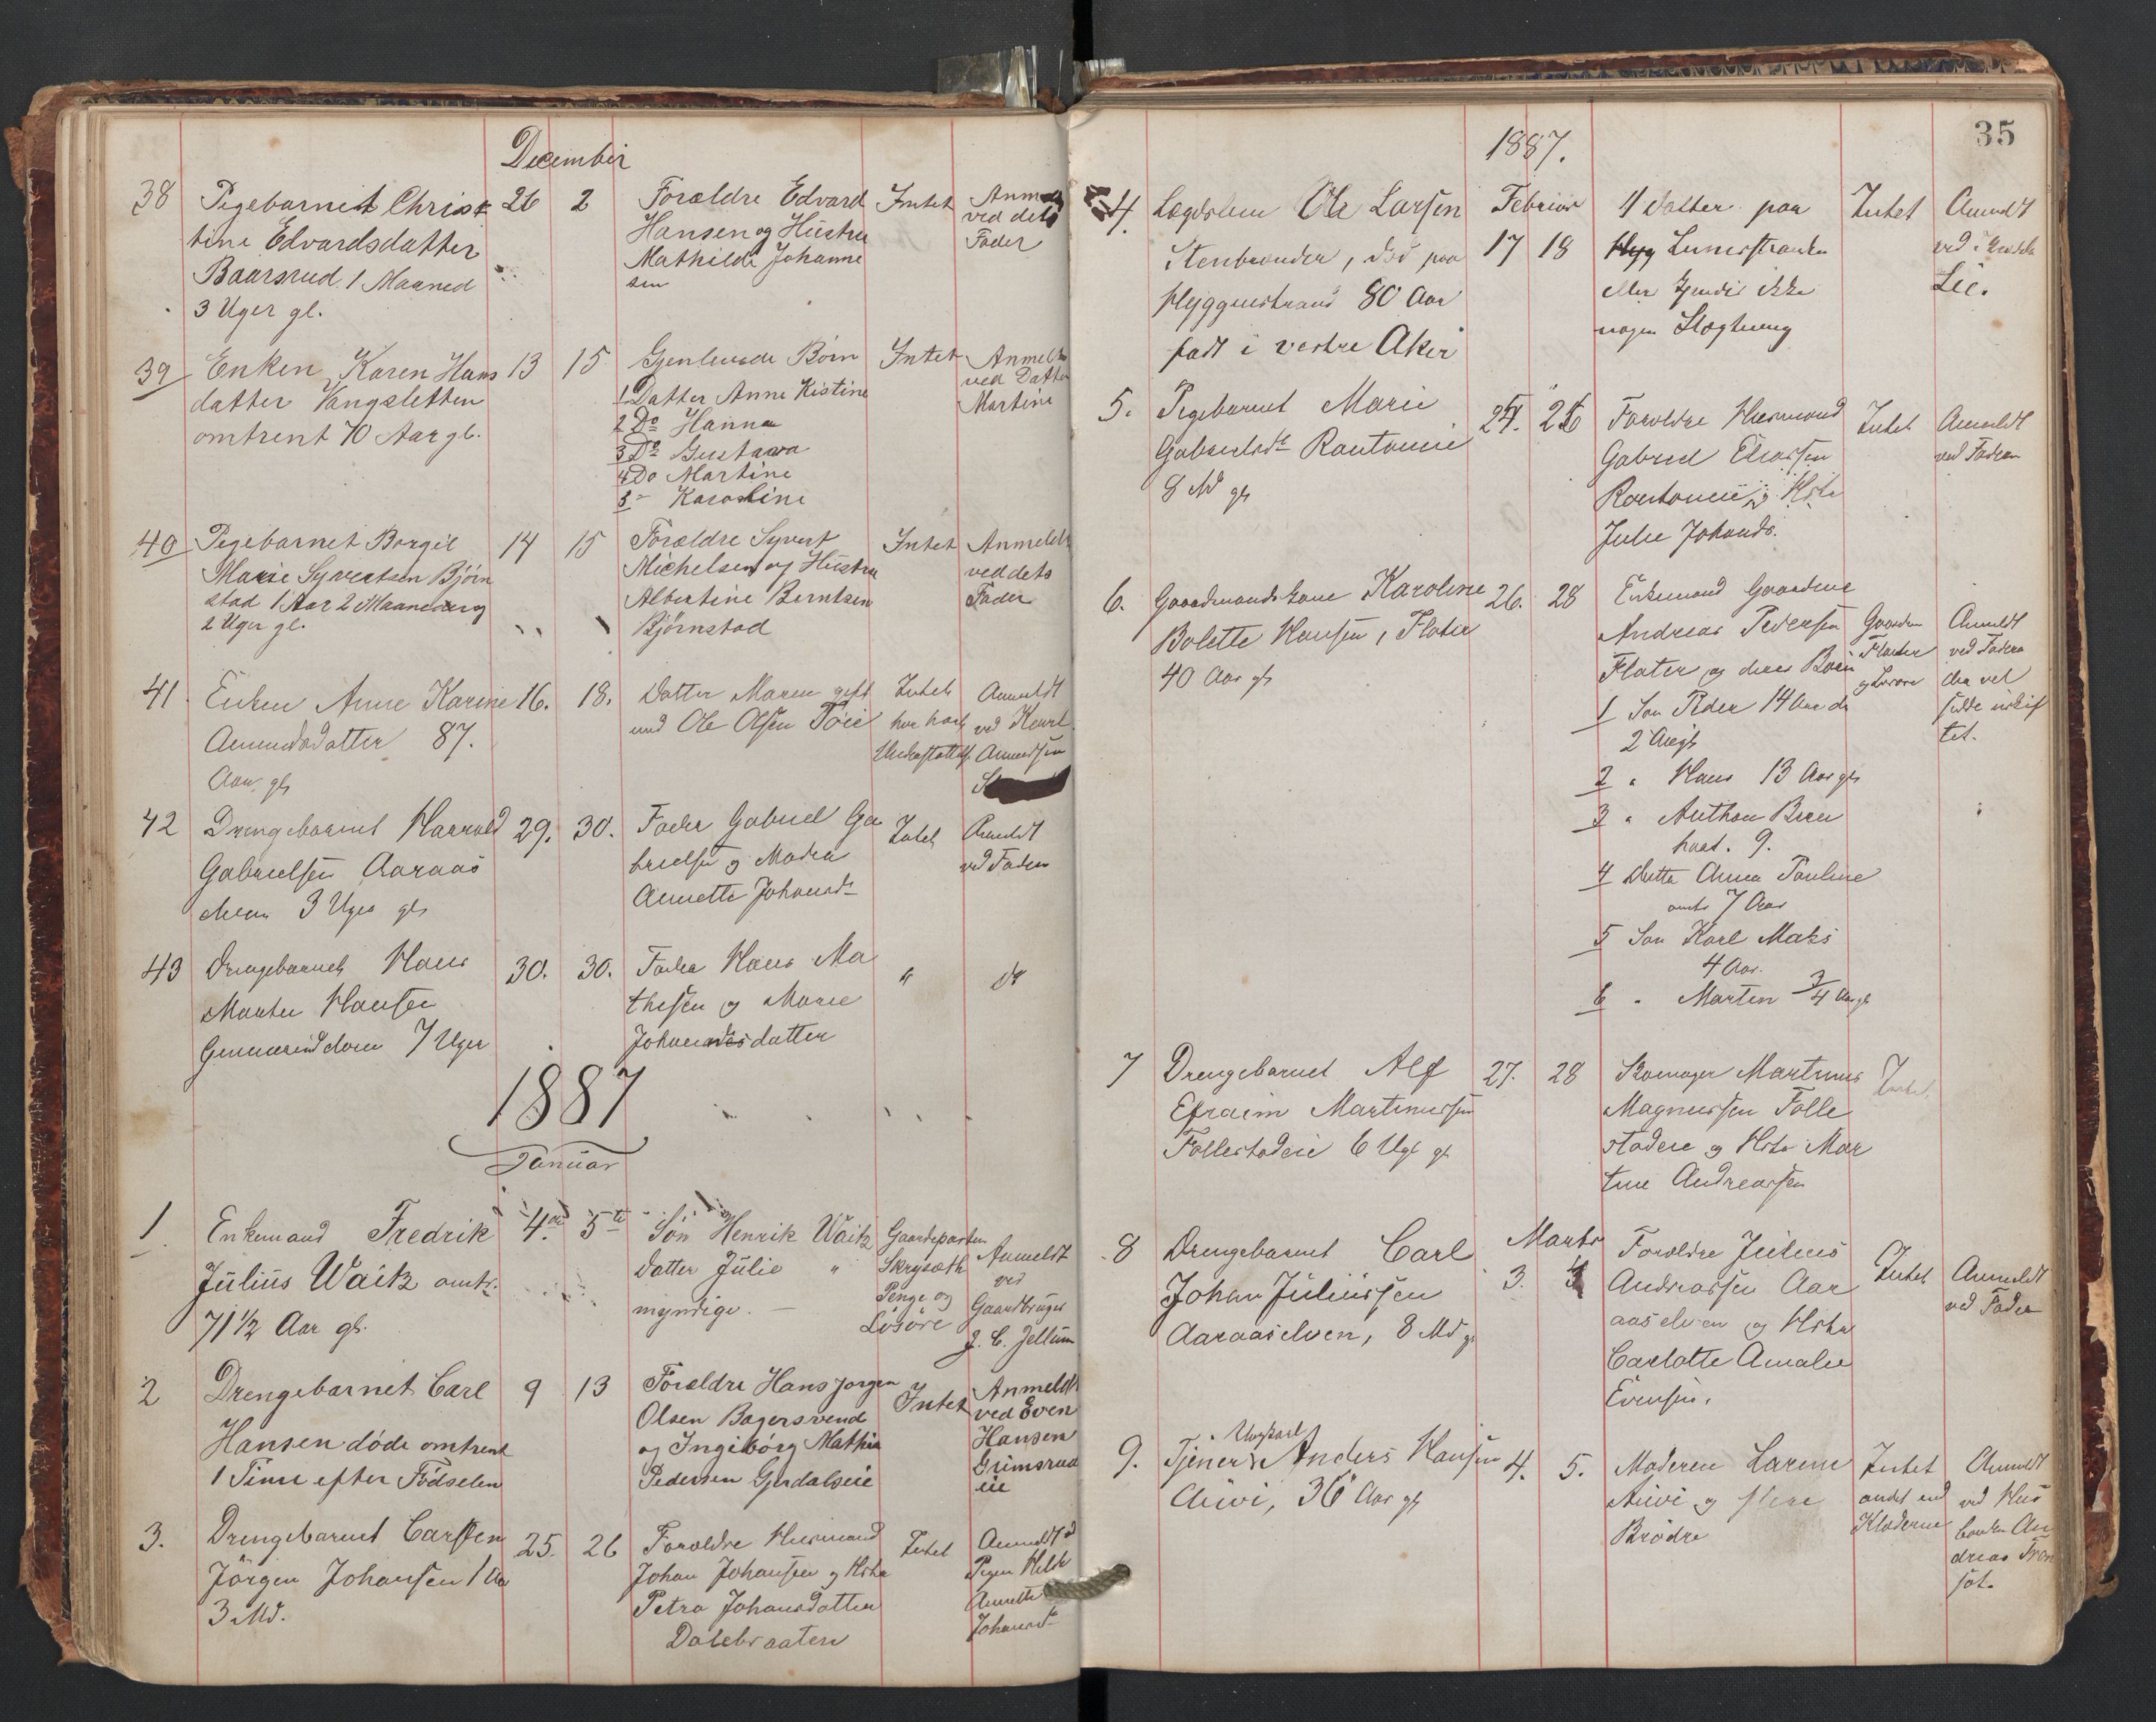 December
38 Pigebarnet Chris
tine Edvardsdatter
Baarsrud 1 Maaned
3 Uger gl.
26 2
Forældre Edvard
Hansen og Hustru
Mathilde Johanne
sen
Intet
Anm
ved dets
Fader
39 Enken Karen Hans
datter Vangsletten
omtrent 70 Aar gl.
13 15
Gjenlevende Børn
1 Datter Anne Kistine
2 Do Hanna
3 Do Gustava
4 Do Martine
5 " Karoline
Intet
Anmeldt
ved Datter
Martine
40 Pigebarnet Borgil
Marie Syvertsen Bjørn
stad 1 Aar 2 Maaneder og
2 Uger gl.
14 15
Forældre Syvert
Michelsen og Hustru
Albertine Berntsen
Bjørnstad
Intet
Anmeldt
ved dets
Fader
41. Enken Anne Karine
Amundsdatter 87.
Aar gl
16. 18.
Datter Maren gift
med Ole Olsen Töie
Intet
har havt
Understøttelse
Anmeldt
ved Karl
Amundsen
42 Drengebarnet Harald
Gabrielsen Aaraas
3 Uger gl
29. 30.
Fader Gabriel Ga
brielsen og Moder
Annette Johansd
Intet
Anmeldt
ved Faderen
43 Drengebarnet Hans
Martin Hansen
7 Uger
30. 30.
Fader Hans Ma
thisen og Marie
Johannesdatter
" do
1887
Januar
1. Enkemand Fredrik
Julius Waitz omtr.
71 1/2 Aar gl.
4de 5te
Søn Henrik Waitz
Datter Julie "
myndige. —
Gaardeparten
Skrysæth
Penge og
Løsøre
Anmeldt
ved
Gaardbruger
J. C. Jellum
2 Drengebarnet Carl
Hansen døde omtrent
1 Time efter Fødselen
9 13
Forældre Hans Jørgen
Olsen Bagersvend
og Ingibørg Mathia
Pedersen Gjerdalseie
Intet
Anmeldt
ved Even
Hansen
Grimsrud
eie
3. Drengebarnet Carsten
Jörgen Johansen 1 Aar
3 Md.
25. 26
Forældre Husmand
Johan Johansen og Hstr
Petra Johansdatter
Dalebraaten
Intet
Anmeldt
Pigen
Annette
Johansd
35
1887.
4. Lægdslem Ole Larsen
Stenbrænder, død paa
Hyggenstrand 80 Aar
født i vestre Aker
Februar
17 18
1 Datter paa
Lierstranden
eller kjendes ikke
nogen Slægtning
Intet
Anmeldt
ved
Lie.
5. Pigebarnet Marie
Gabrielsdt
8 Md gl
24. 26
Forældre Husmand
Gabriel Eliassen
og Hstr
Julie Johansd.
Intet
Anmeldt
ved Faderen
6. Gaardmandskone Karoline
Bolette Hansen, Flater
40 Aar gl
26. 28
Enkemand Gaardm
Andreas Pedersen
Flater og deres Børn
1 Søn Peder 14 Aar
2 " Hans 13 Aar gl
3 " Anthon Bern
hart. 9.
4 Datter Anna Pauline
omtr 7 Aar
5 Søn Karl Maks
4 Aar.
6 " Martin 3/4 Aar gl
Gaarden
Flater
og Løsøre
Anmeldt
ved Faderen
der vel
sidde uskif
tet.
7 Drengebarnet Alf
Efraim Martinussen
Follestadeie 6 Ug gl
27. 28
Skomager Martinus
Magnussen Folle
stadeie og Hstr Mar
tine Andreassen
Intet
8 Drengebarnet Carl
Johan Juliussen
Aaraaselven, 8 Md gl
Marts
3. 4
Forældre Julius
Andreassen Aar
aaselven og Hstr
Carlotte Amalie
Evensen.
Intet
Anmeldt
ved Fader
9. Tjener Ungkarl Anders Hansen
Auvi, 36 Aar gl
4. 5.
Moderen Laren
Auvi og flere
Brødre
Intet
andet end
Klæderne
Anmeldt
ved Hus
An
dreas